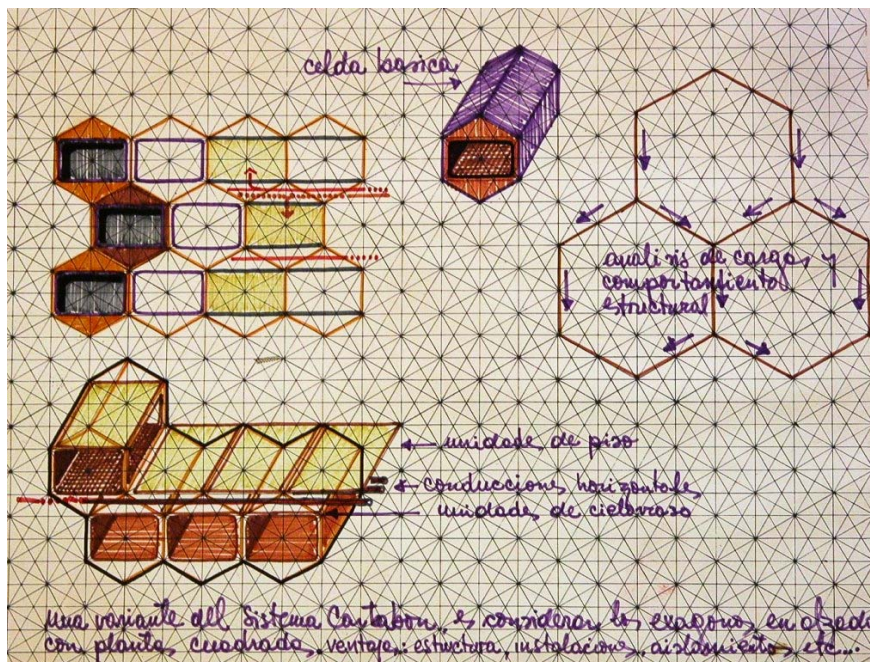 celda basica
analisis de cargas y
comportamiento
estructural
unidades de piso
conducciones horizontales
unidades de cielorraso
una variante del Sistema Cartabon, es considerar los exagonos en alzada
con planta cuadrada, ventajas: estructura, instalaciones, aislamiento, etc...